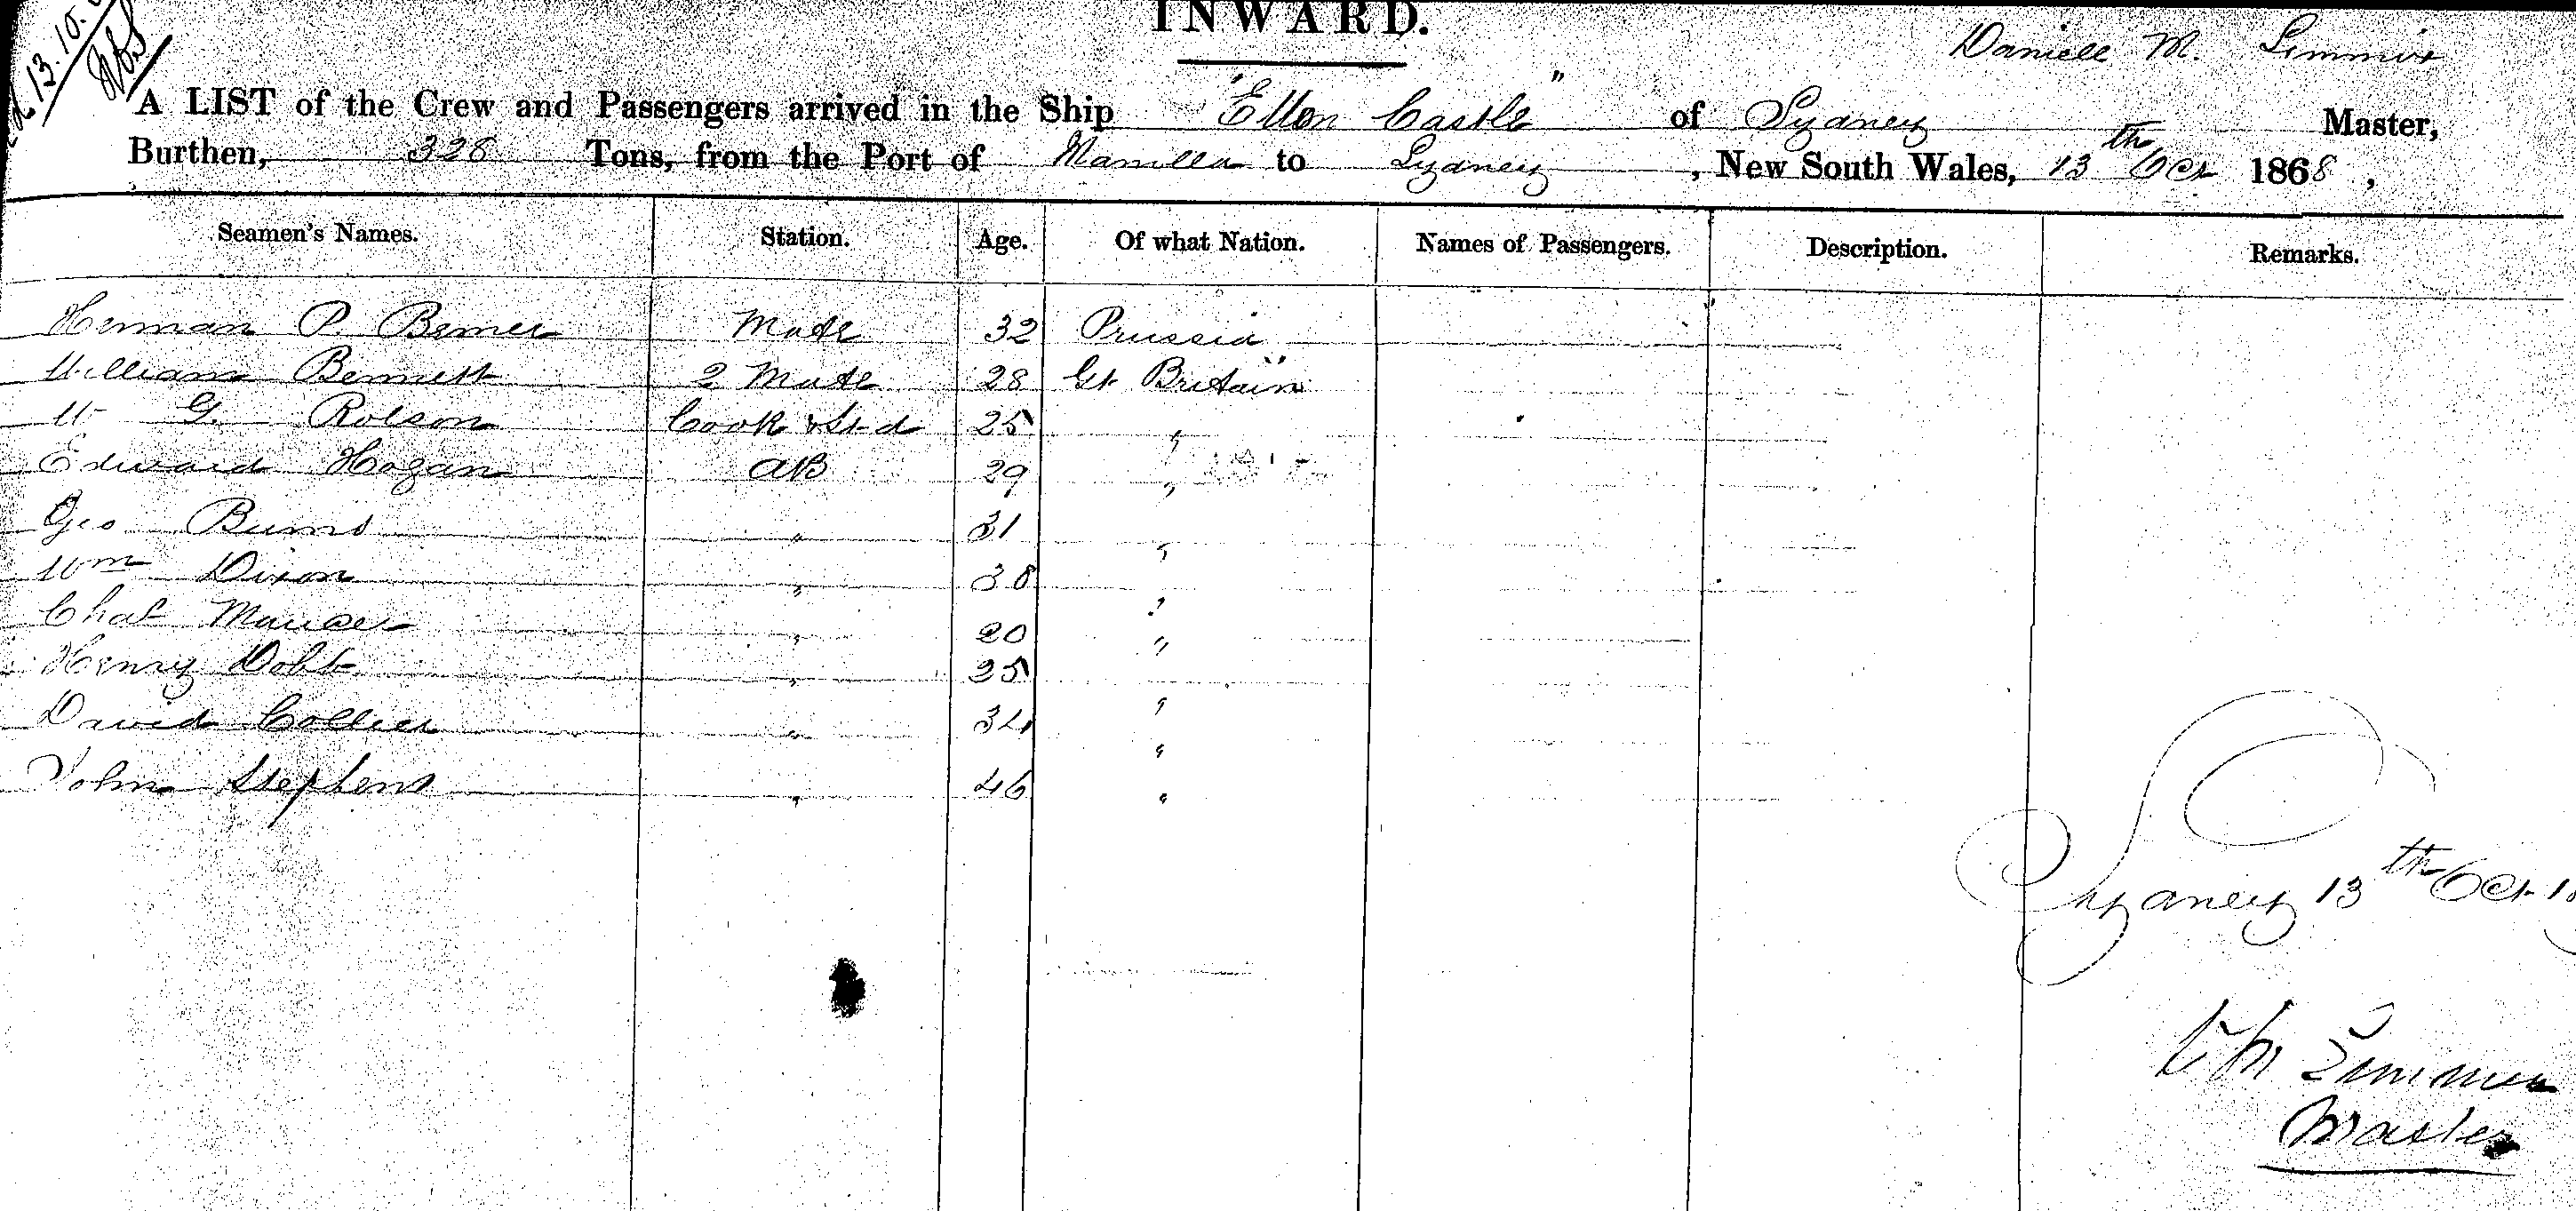 INWARD.
13.10.
Daniell M.
A LIST of the Crew and Passengers arrived in the Ship "Elton Castle" of Sydney Master,
Burthen, 328 Tons, from the Port of Manilla to Sydney, New South Wales, 13th Oct 1868,
Seamen's Names. Station. Age. Of what Nation. Names of Passengers. Description. Remarks.
Herman P. Mate 32 Prussia
William Bennett 2 Mate 28 Gt Britain
W G. Rolson Cook & Std 25 "
Edward Hogan AB 29 "
Geo Burns " 31 "
Wm Dixon " 38 "
Chas " 20 "
Henry " 25 "
David Collier " 34 "
John Stephens " 46 "
Sydney 13th Oct
Master